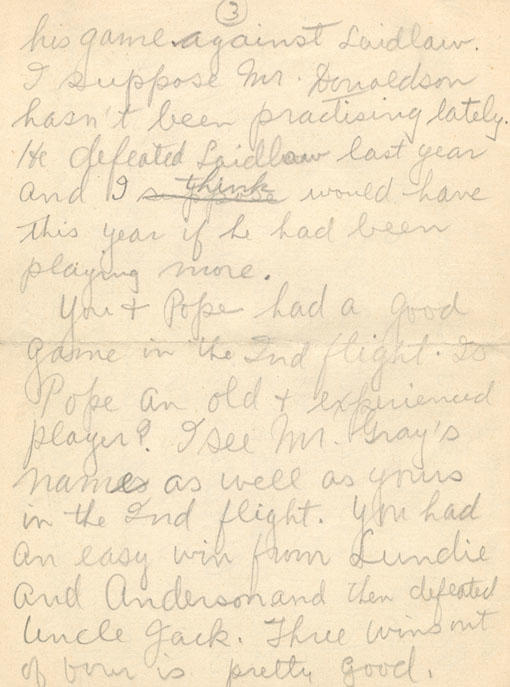 3
his game against Laidlaw.
I suppose Mr. Donaldson
hasn't been practising lately.
He defeated Laidlaw last year
and I think would have
this year if he had been
playing more.
You & Pope had a good
game in the 2nd flight. Is
Pope an old & experienced
player? I see Mr. Gray's
names as well as yours
in the 2nd flight. You had
an easy win from Lundie
and Anderson and then defeated
Uncle Jack. Three wins out
of four is pretty good.